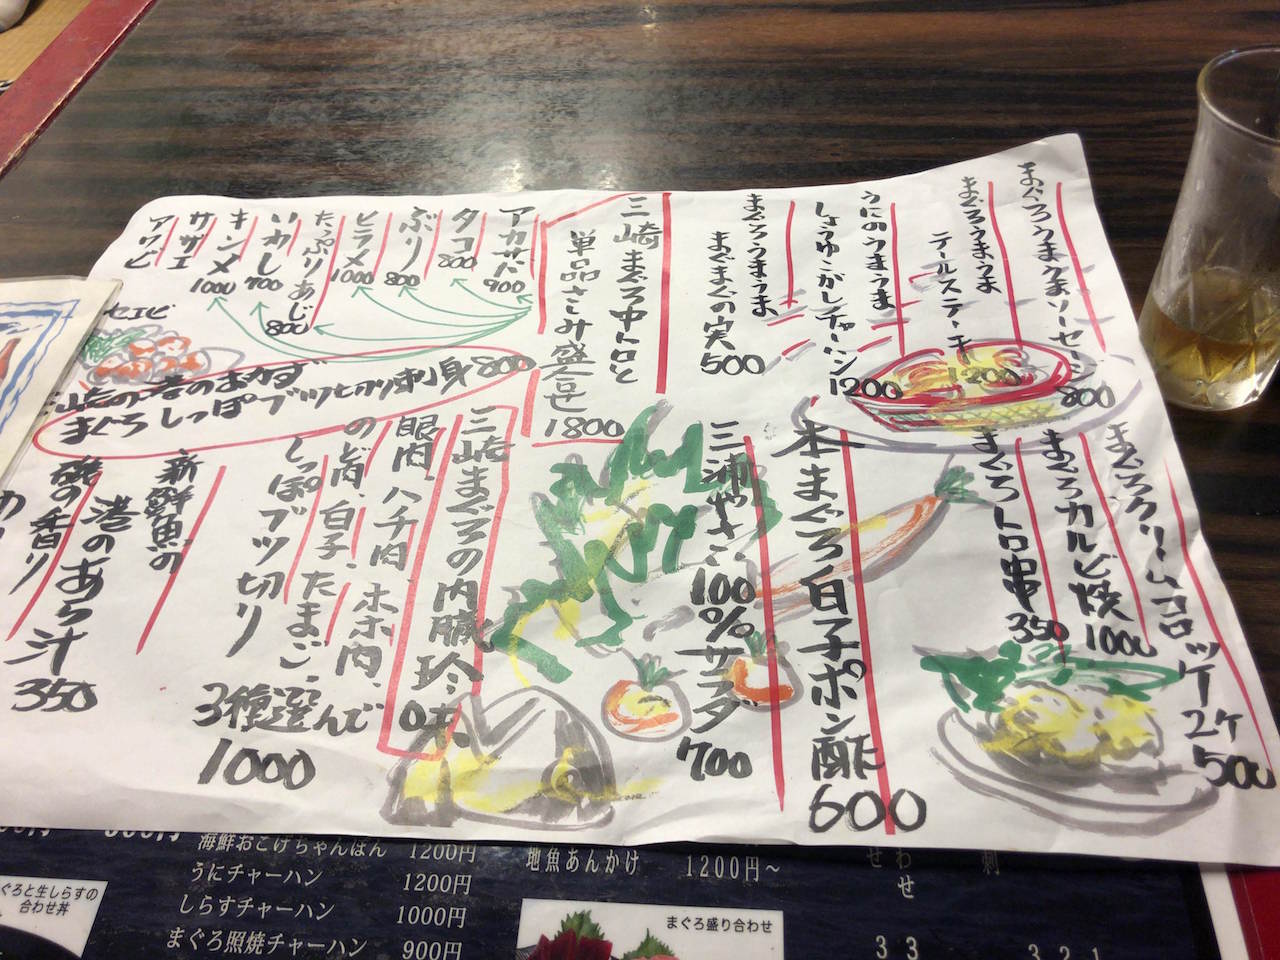 まぐろうまうまソーセージ
800
まぐろうまうま
テールステーキ
1200
うにのうまうま
しょうゆこがしチャーハン
1200
まぐろうまうま
まぐまぐの実
500
三崎まぐろ中トロと
単品さしみ盛合せ
1800
アカザエビ
900
タコ
800
ぶり
800
ヒラメ
1000
たっぷりあじ
800
いわし
700
キンメ
1000
サザエ
アワビ
まぐろクリームコロッケ2ケ
500
まぐろカルビ焼
1000
まぐろトロ串
350
本まぐろ白子ポン酢
600
三浦やさい100%サラダ
700
三崎まぐろの内臓珍味
眼肉、ハチ肉、ホホ肉、
のど肉、白子、たまご、
しっぽブツ切り
3種選んで
1000
三崎の港のおかず
まぐろしっぽブツ切り刺身800
新鮮魚の
港のあら汁
350
磯の香り
海鮮おこげちゃんぽん 1200円
うにチャーハン 1200円
しらすチャーハン 1000円
まぐろ照焼チャーハン 900円
地魚あんかけ 1200円～
まぐろ盛り合わせ
ぐろと生しらすの
合わせ丼